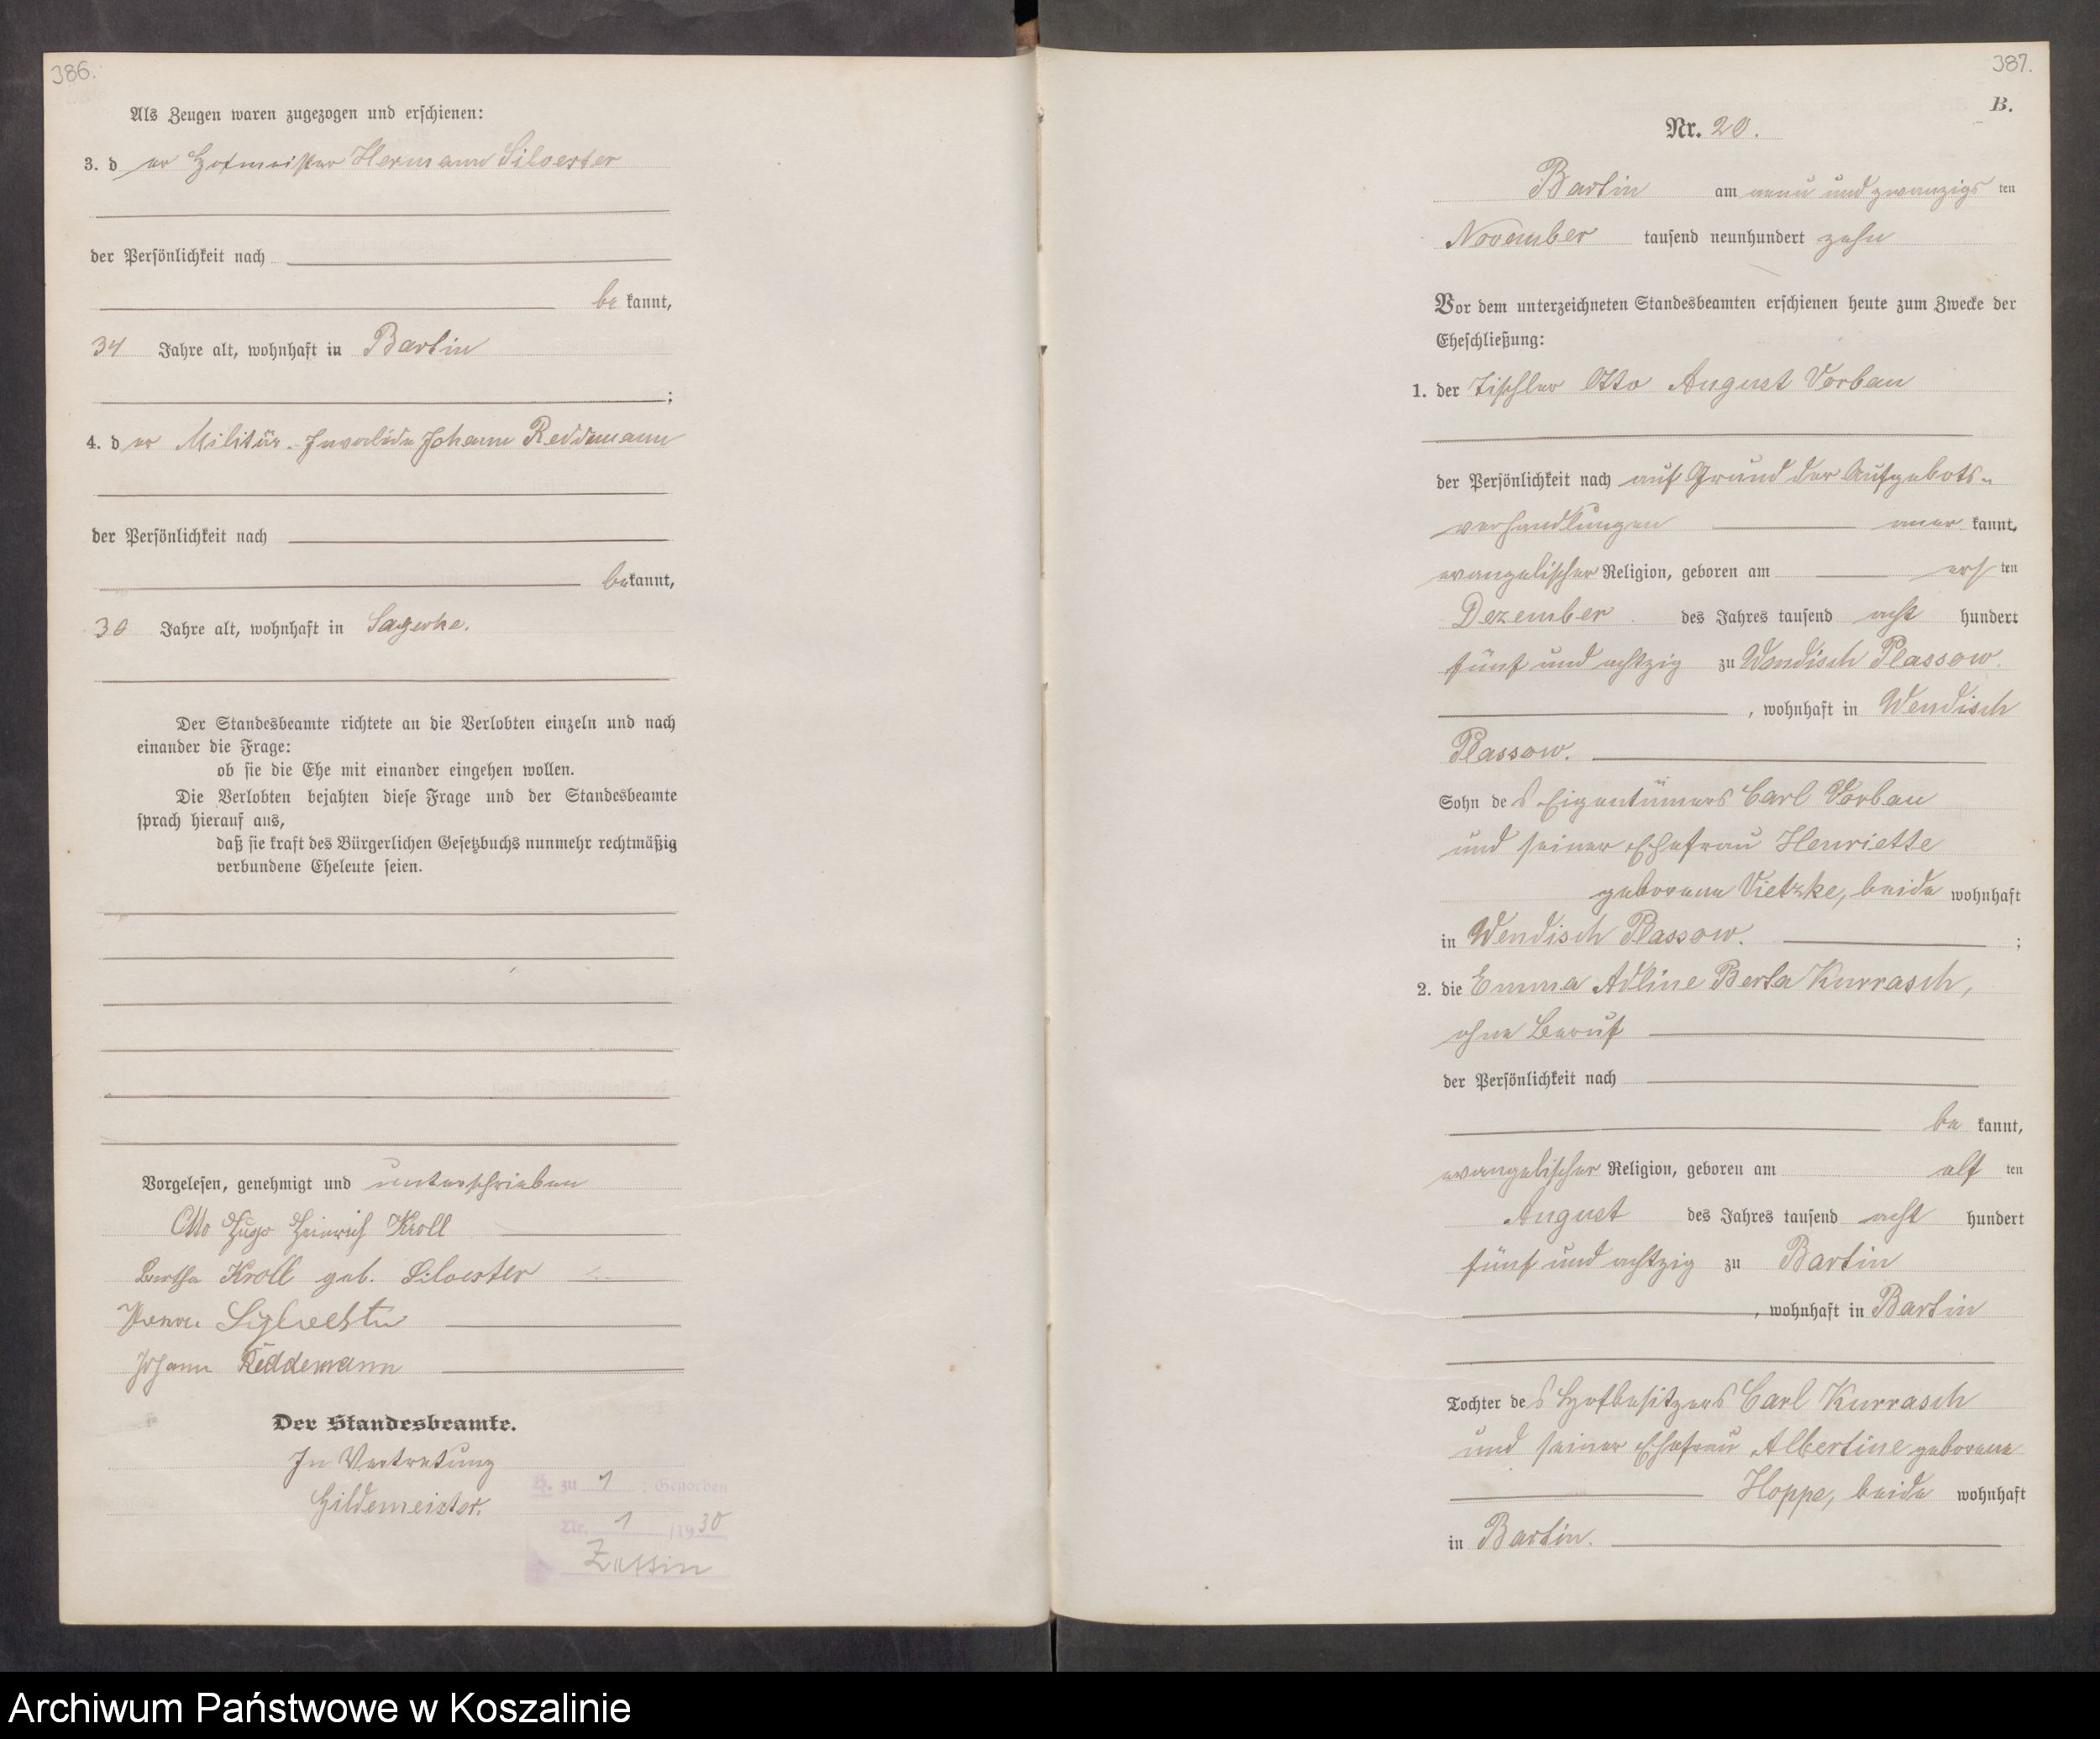 386.
Als Zeugen waren zugezogen und erschienen:
3. der Hofmeister Hermann Silvester
der Persönlichkeit nach
bekannt,
34 Jahre alt, wohnhaft in Bartin
;
4. der Militär-Invalide Johann Reddemann
der Persönlichkeit nach
bekannt,
36 Jahre alt, wohnhaft in Sagerke.
Der Standesbeamte richtete an die Verlobten einzeln und nach
einander die Frage:
ob sie die Ehe mit einander eingehen wollen.
Die Verlobten bejahten diese Frage und der Standesbeamte
sprach hierauf aus,
daß sie kraft des Bürgerlichen Gesetzbuchs nunmehr rechtmäßig
verbundene Eheleute seien.
Vorgelesen, genehmigt und unterschrieben
Otto Hugo Heinrich Kroll
Bertha Kroll geb. Silvester
Johann Reddemann
Der Standesbeamte.
In Vertretung
Hildemeister.
H. zu 1 : Gestorben
Nr. 1 /1930
Zettin
387.
B.
Nr. 20.
Bartin am neun und zwanzigsten
November tausend neunhundert zehn
Vor dem unterzeichneten Standesbeamten erschienen heute zum Zwecke der
Eheschließung:
1. der Tischler Otto August Vorbau
der Persönlichkeit nach auf Grund der Aufgebots-
verhandlungen anerkannt,
evangelischer Religion, geboren am ersten
Dezember des Jahres tausend acht hundert
fünf und achtzig zu Wendisch Plassow
, wohnhaft in Wendisch
Plassow.
Sohn des Eigentümers Carl Vorbau
und seiner Ehefrau Henriette
geborene Vietzke, beide wohnhaft
in Wendisch Plassow. ;
2. die Emma Adline Berta Kurrasch,
ohne Beruf
der Persönlichkeit nach
bekannt,
evangelischer Religion, geboren am elften
August des Jahres tausend acht hundert
fünf und achtzig zu Bartin
, wohnhaft in Bartin
Tochter des Hofbesitzers Carl Kurrasch
und seiner Ehefrau Albertine geborene
Hoppe, beide wohnhaft
in Bartin.
Archiwum Państwowe w Koszalinie